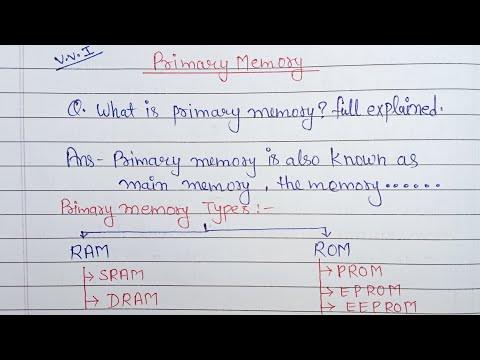 V.V.I
Primary Memory
Q. What is primary memory? full explained.
Ans- Primary memory is also known as
main memory, the memory......
Primary memory Types:-
RAM
SRAM
DRAM
ROM
PROM
EPROM
EEPROM